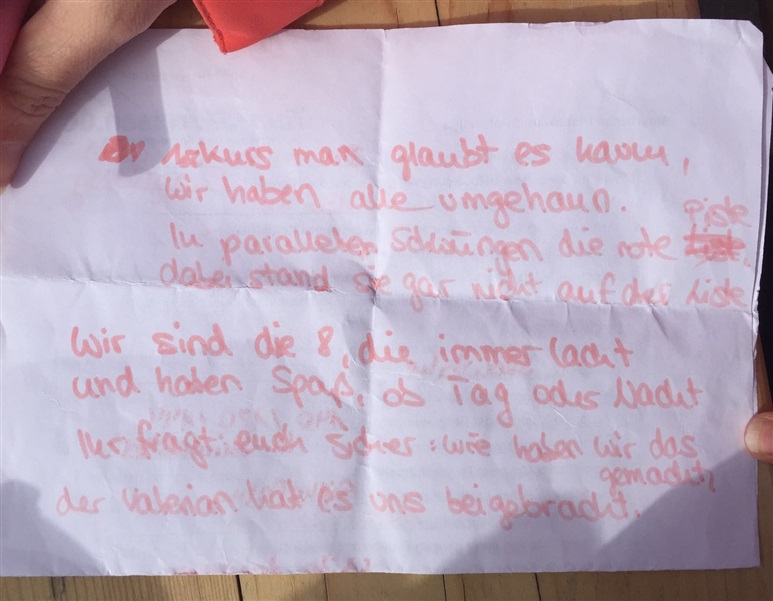 Skikurs man glaubt es kaum,
wir haben alle umgehaun.
In parallelen Schwüngen die rote Piste
dabei stand sie gar nicht auf der Liste
Wir sind die 8, die immer lacht
und haben Spaß, ob Tag oder Nacht
Ihr fragt euch sicher: wie haben wir das
gemacht,
der Valerian hat es uns beigebracht.